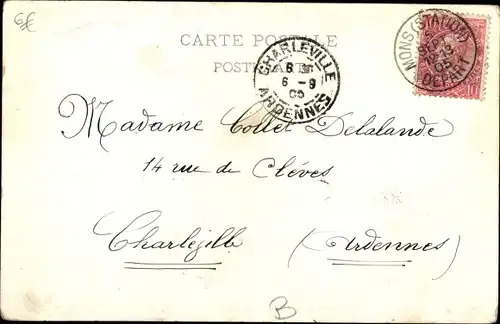 6€
CARTE POSTALE
POSTKARTE
CHARLEVILLE
6 - 9
05
ARDENNES
MONS (STATION)
SEPT
05
DEPART
10
Madame Collet Delalande
14 rue de Clèves
Charleville
(Ardennes)
B